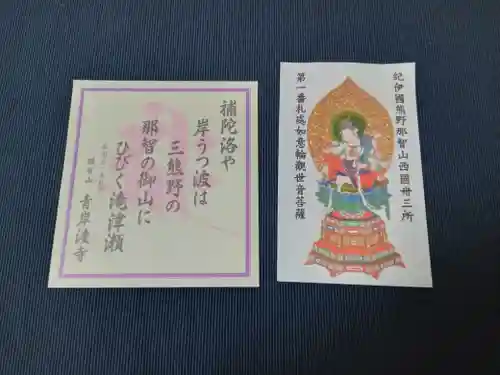 補陀洛や
岸うつ波は
三熊野の
那智の御山に
ひびく滝津瀬
那智山 青岸渡寺
紀伊國熊野那智山西國卅三所
第一番札所如意輪觀世音菩薩